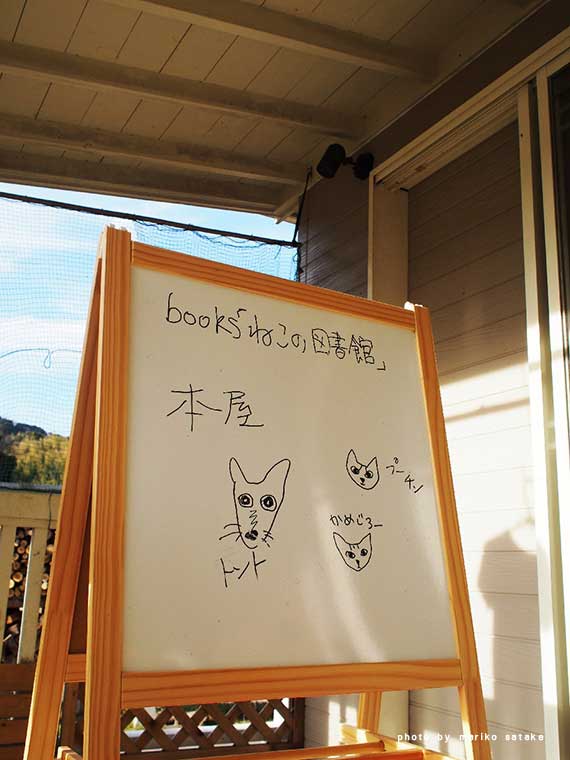 books「ねこの図書館」
本屋
プーチン
かめじろー
トント
photo by mariko satake